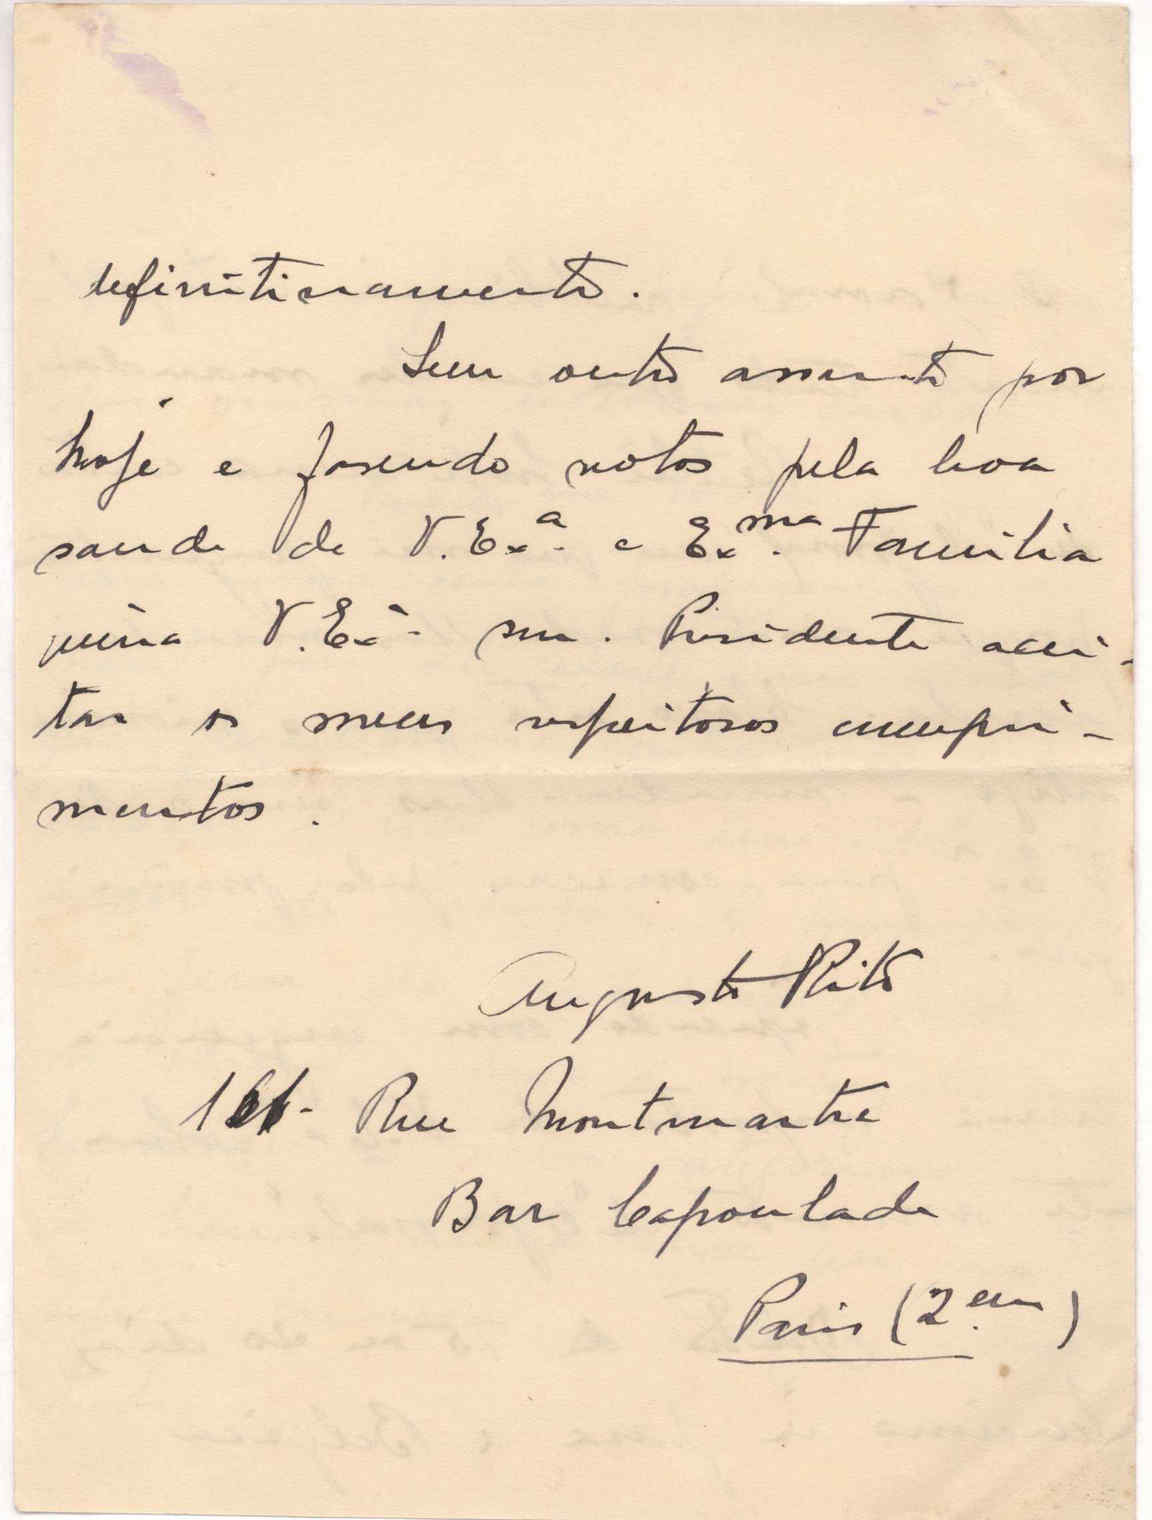 definitivamente.
Sem outro assunto por
hoje e fasendo votos pela boa
saude de V. Ex.ª e Ex.ma Familia
queira V. Ex.ª snr. Presidente acei-
tar os meus respeitosos cumpri-
mentos.
Augusto Pinto
Rue Montmartre
Bar Capoulade
Paris (2.em)